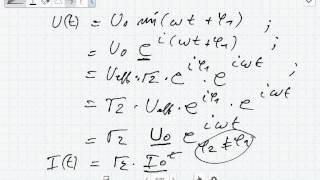 U(t) = U₀ sin(ωt + φ₁) ;
= U₀ e^{i(ωt+φ₁)} ;
= U_eff · √2 · e^{iφ₁} · e^{iωt}
= √2 · U_eff · e^{iφ₁} · e^{iωt}
= √2 U₀ e^{iωt} φ₂ ≠ φ₁
I(t) = √2 · I₀